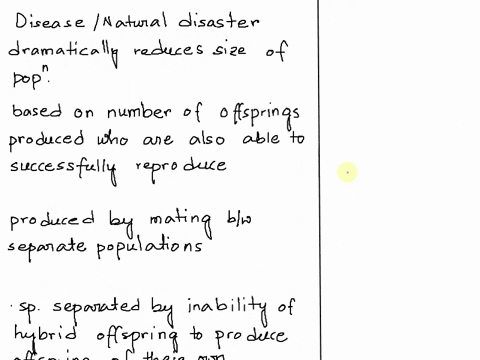 Disease / Natural disaster
dramatically reduces size of
popⁿ.
based on number of offsprings
produced who are also able to
successfully reproduce
produced by mating b/w
separate populations
· sp. separated by inability of
hybrid offspring to produce
offspring of their own